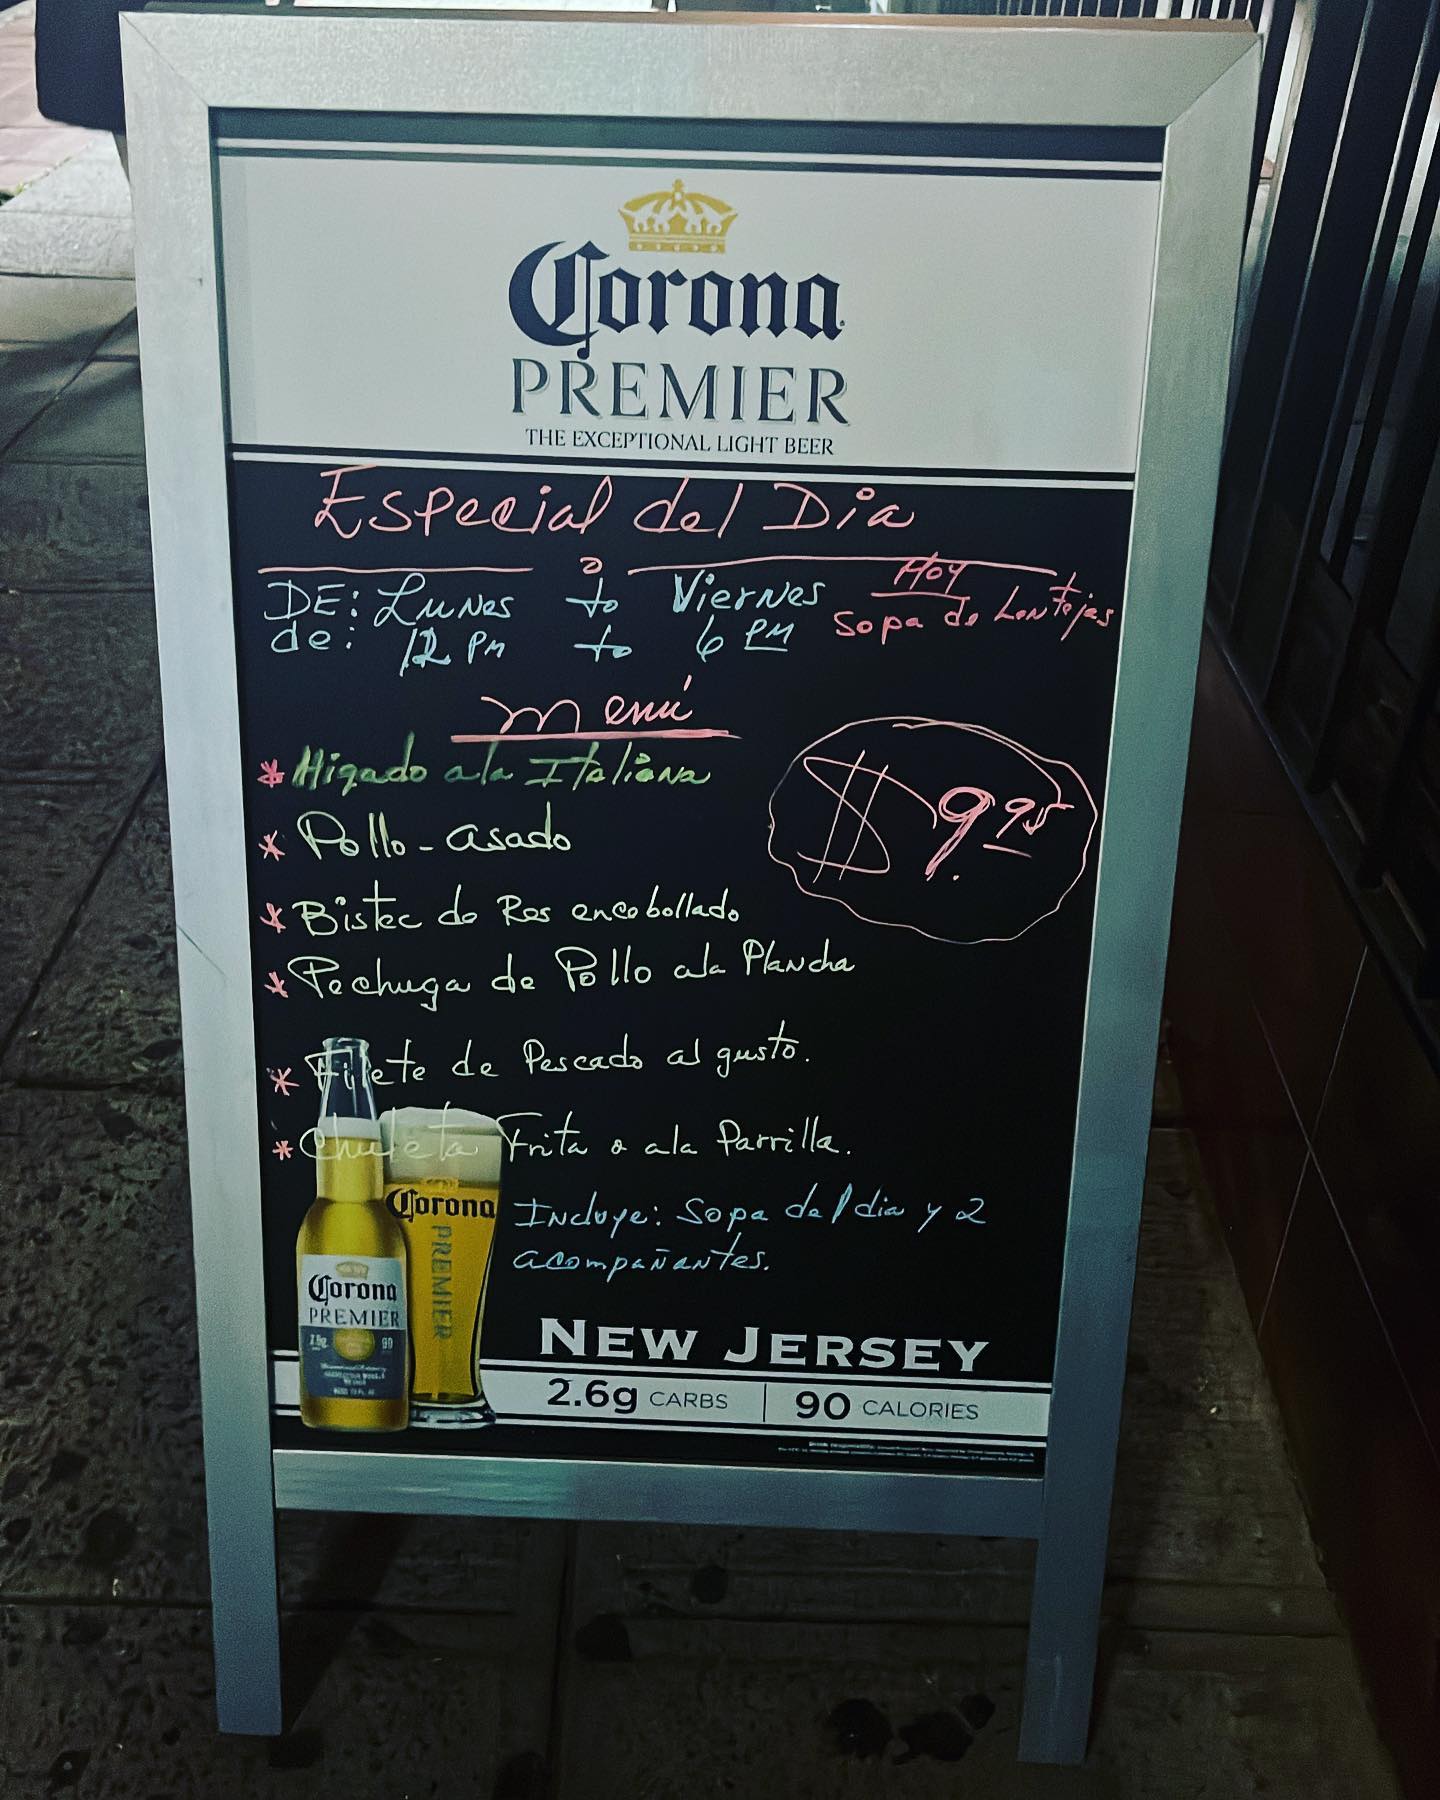 Corona
PREMIER
THE EXCEPTIONAL LIGHT BEER
Especial del Dia
DE: Lunes to Viernes
de: 12 PM to 6 PM
Hoy
Sopa de Lentejas
Menú
* Higado a la Italiana
$9.95
* Pollo - asado
* Bistec de Res encebollado
* Pechuga de Pollo a la Plancha
* Filete de Pescado al gusto.
* Chuleta Frita o a la Parrilla.
Incluye: Sopa del dia y 2
acompañantes.
Corona
PREMIER
Corona
PREMIER
NEW JERSEY
2.6g CARBS | 90 CALORIES